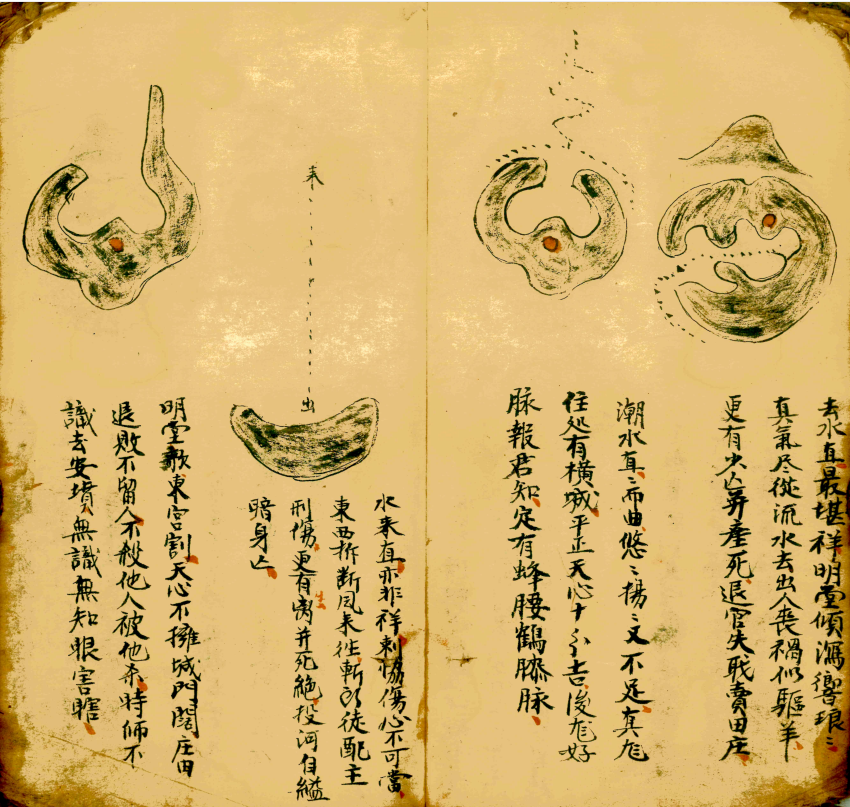 去水直最堪祥明堂傾瀉響琅〻
真氣尽從流水去出人喪禍似驅羊
更有少亡并產死退官失職賣田庄
潮水直〻而曲悠〻揚〻又不足真龙
住処有橫城平正天心十分吉後龙好
脉報君知定有蜂腰鶴膝脉
水来直亦非祥刺脇傷心不可當
東西拆断風来往斬
徒配主
刑傷更有离生并死絶投河自縊
暗身亡
来
出
明堂歌東宮割天心不擁城門闊庄田
退敗不留人不殺他人被他杀時师不
識去安墳無識無知眼害瞎